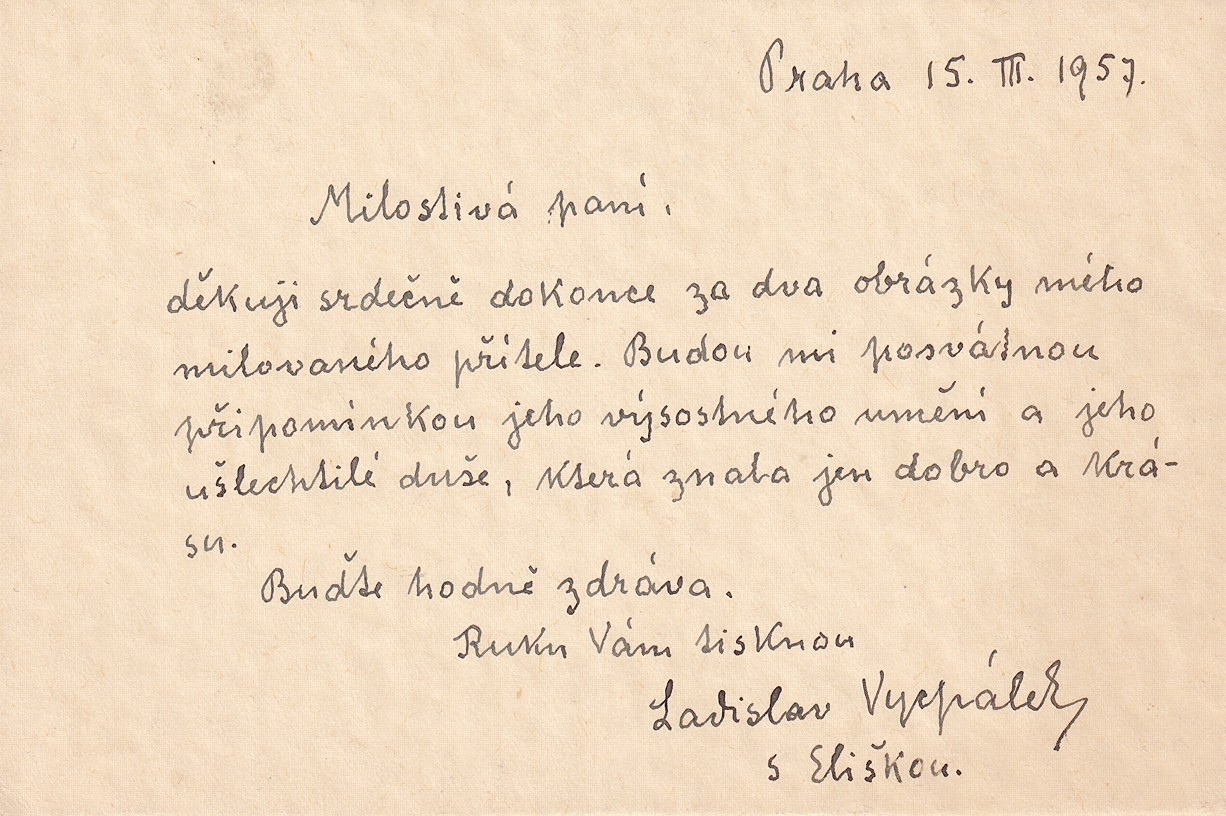 Praha 15. III. 1957.
Milostivá paní,
děkuji srdečně dokonce za dva obrázky mého
milovaného přítele. Budou mi posvátnou
připomínkou jeho výsostného umění a jeho
ušlechtilé duše, která znala jen dobro a krá-
su.
Buďte hodně zdráva.
Ruku Vám tisknou
Ladislav Vycpálek
s Eliškou.